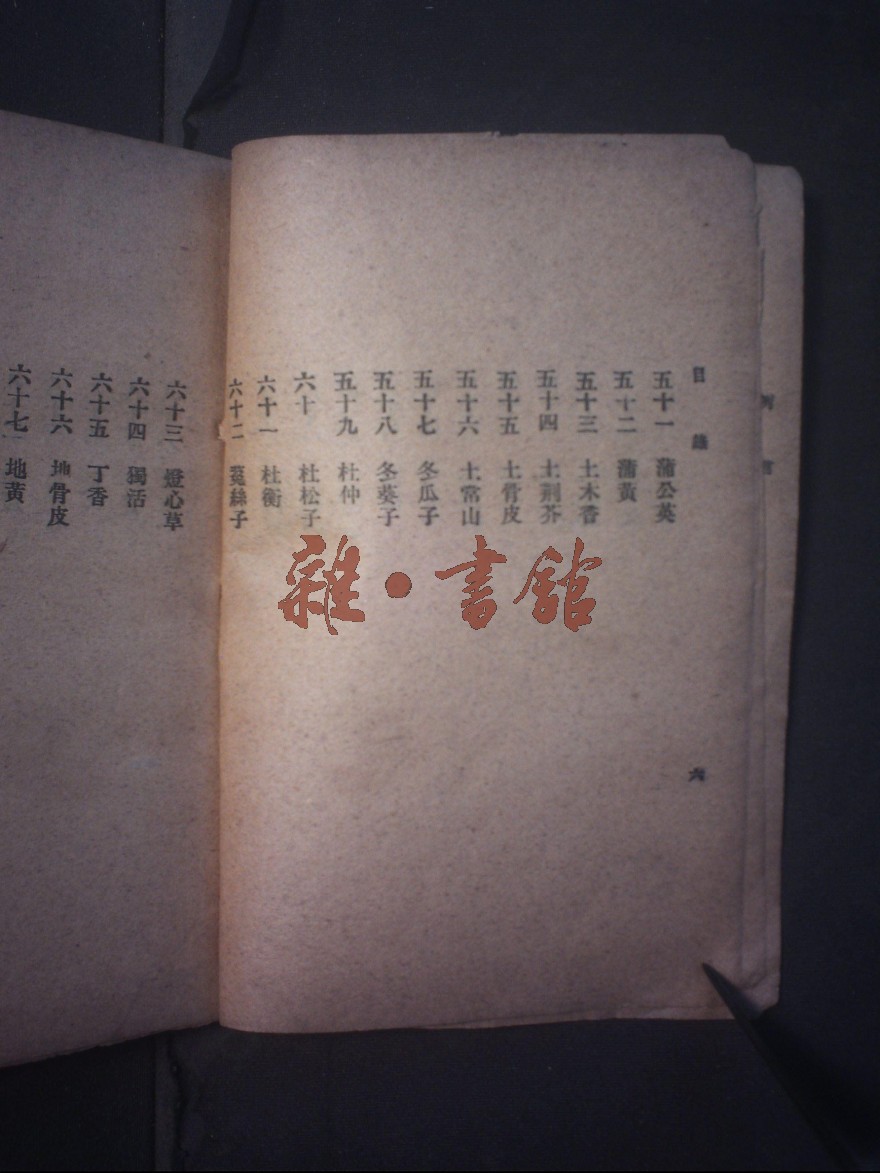 目錄
五十一 蒲公英
五十二 蒲黃
五十三 土木香
五十四 土荊芥
五十五 土骨皮
五十六 土常山
五十七 冬瓜子
五十八 冬葵子
五十九 杜仲
六十 杜松子
六十一 杜衡
六十二 菟絲子
六
六十三 燈心草
六十四 獨活
六十五 丁香
六十六 地骨皮
六十七 地黃
雜·書館